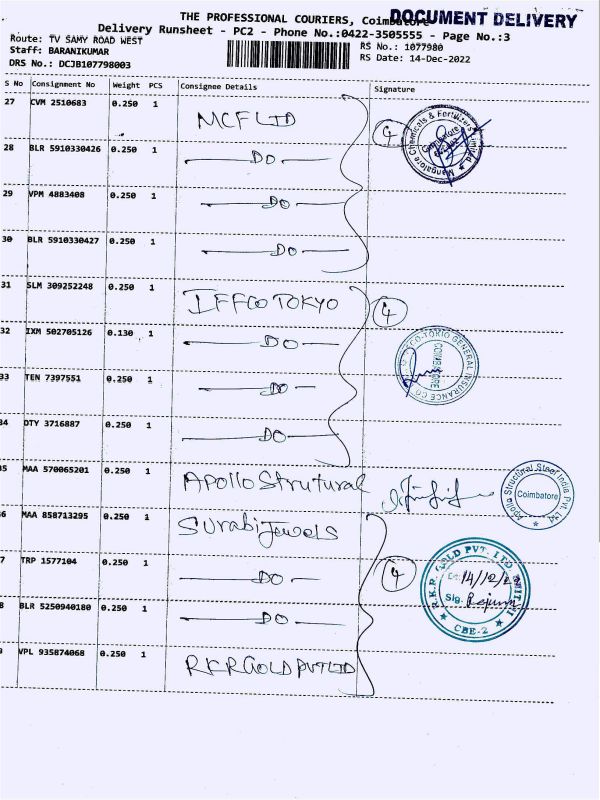 THE PROFESSIONAL COURIERS, Coimbatore
DOCUMENT DELIVERY
Delivery Runsheet - PC2 - Phone No.:0422-3505555 - Page No.:3
Route: TV SAMY ROAD WEST
Staff: BARANIKUMAR
DRS No.: DCJB107798003
RS No.: 1077980
RS Date: 14-Dec-2022
S No Consignment No Weight PCS Consignee Details Signature
27 CVM 2510683 0.250 1 MCF LTD
4
Mangalore Chemicals & Fertilizers Limited
Coimbatore
28 BLR 5910330426 0.250 1 DO
29 VPM 4883408 0.250 1 DO
30 BLR 5910330427 0.250 1 DO
31 SLM 309252248 0.250 1 IFFCO TOKYO
4
32 IXM 502705126 0.130 1 DO
IFFCO-TOKIO GENERAL INSURANCE CO
COIMBATORE
33 TEN 7397551 0.250 1 DO
34 OTY 3716887 0.250 1 DO
35 MAA 570065201 0.250 1 Apollo Strutural
Apollo Structural Steel India Pvt. Ltd
Coimbatore
36 MAA 858713295 0.250 1 Surabi Jewels
4
7 TRP 1577104 0.250 1 DO
R.K.R. GOLD PVT. LTD
Dt: 14/12/22
Sig.
CBE-2
8 BLR 5250940180 0.250 1 DO
9 VPL 935874068 0.250 1 RKR GOLD PVT LTD